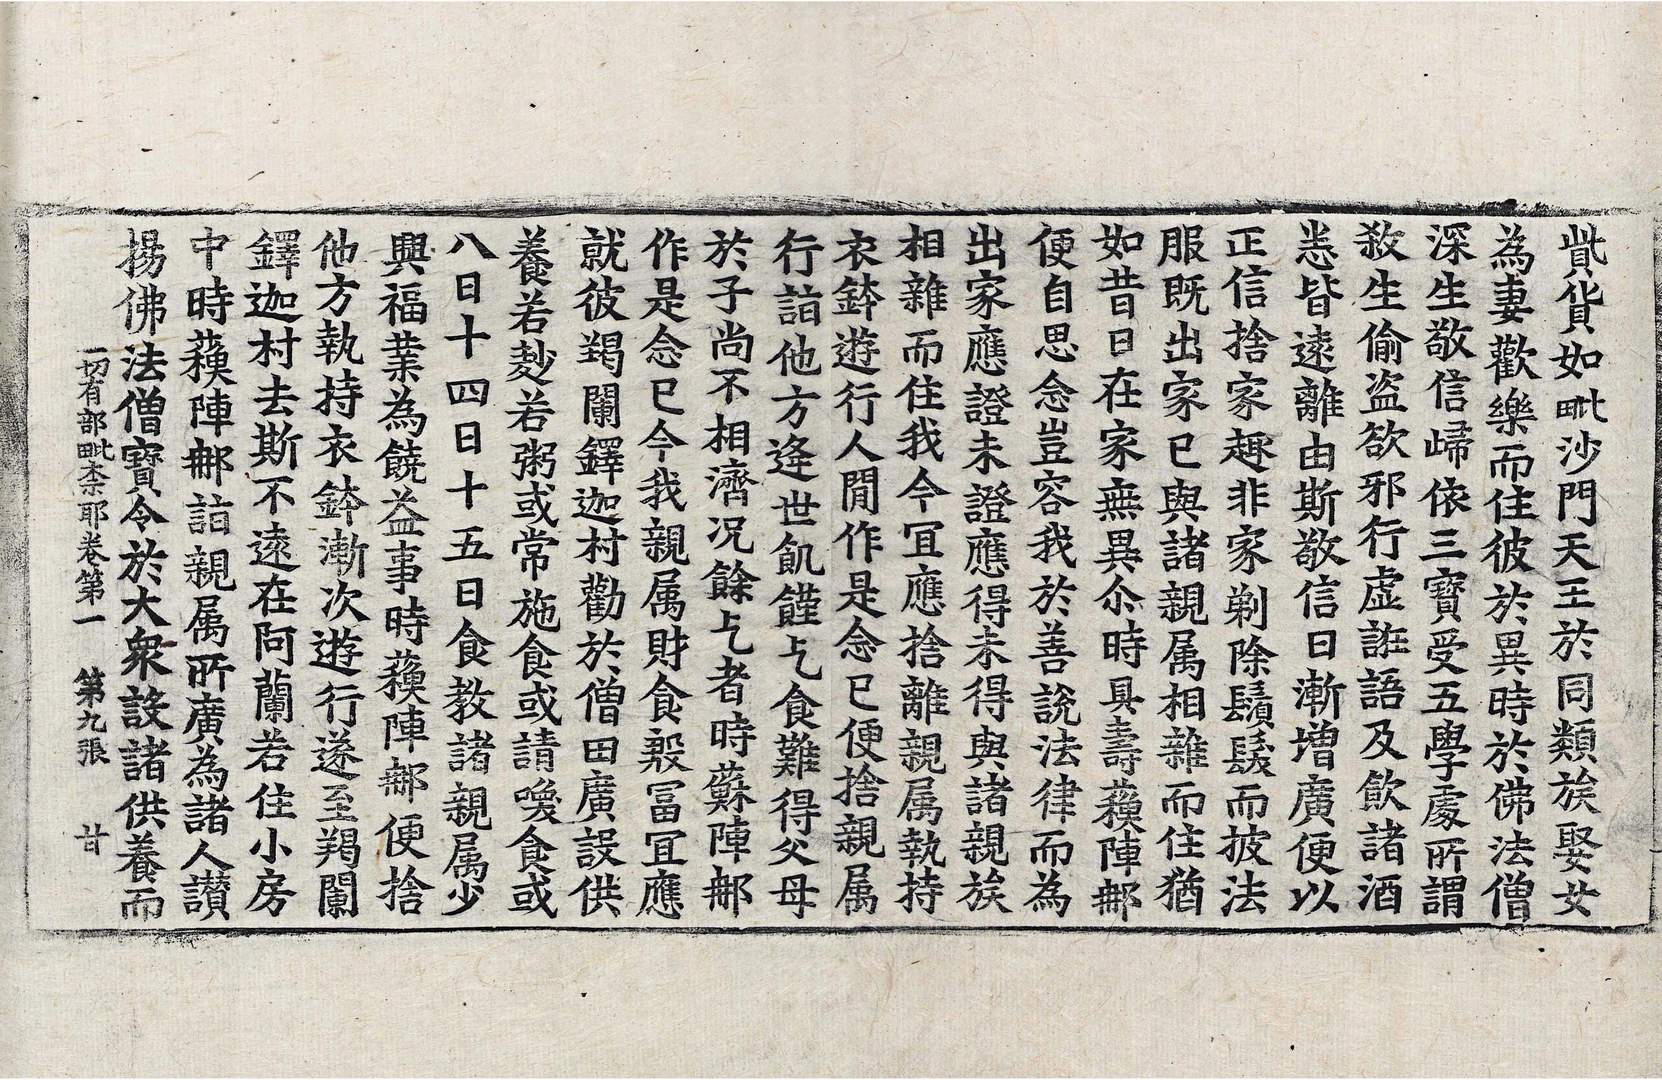 貲貨如毗沙門天王於同類族娶女
為妻歡樂而住彼於異時於佛法僧
深生敬信歸依三寶受五學處所謂
殺生偷盜欲邪行虛誑語及飲諸酒
悉皆遠離由斯敬信日漸增廣便以
正信捨家趣非家剃除鬚髮而披法
服既出家已與諸親属相雜而住猶
如昔日在家無異尒時具壽蘓陣䣋
便自思念豈容我於善說法律而為
出家應證未證應得未得與諸親族
相雜而住我今冝應捨離親属執持
衣鉢遊行人間作是念已便捨親属
行詣他方逢世飢饉乞食難得父母
於子尚不相濟况餘乞者時蘇陣䣋
作是念已今我親属財食殷冨冝應
就彼羯闌鐸迦村勸於僧田廣設供
養若麨若粥或常施食或請喚食或
八日十四日十五日食教諸親属少
興福業為饒益事時蘓陣䣋便捨
他方執持衣鉢漸次遊行遂至羯闌
鐸迦村去斯不遠在阿蘭若住小房
中時蘓陣䣋詣親属所廣為諸人讃
揚佛法僧寶令於大衆設諸供養而
一切有部毗柰耶卷第一　第九張　甘